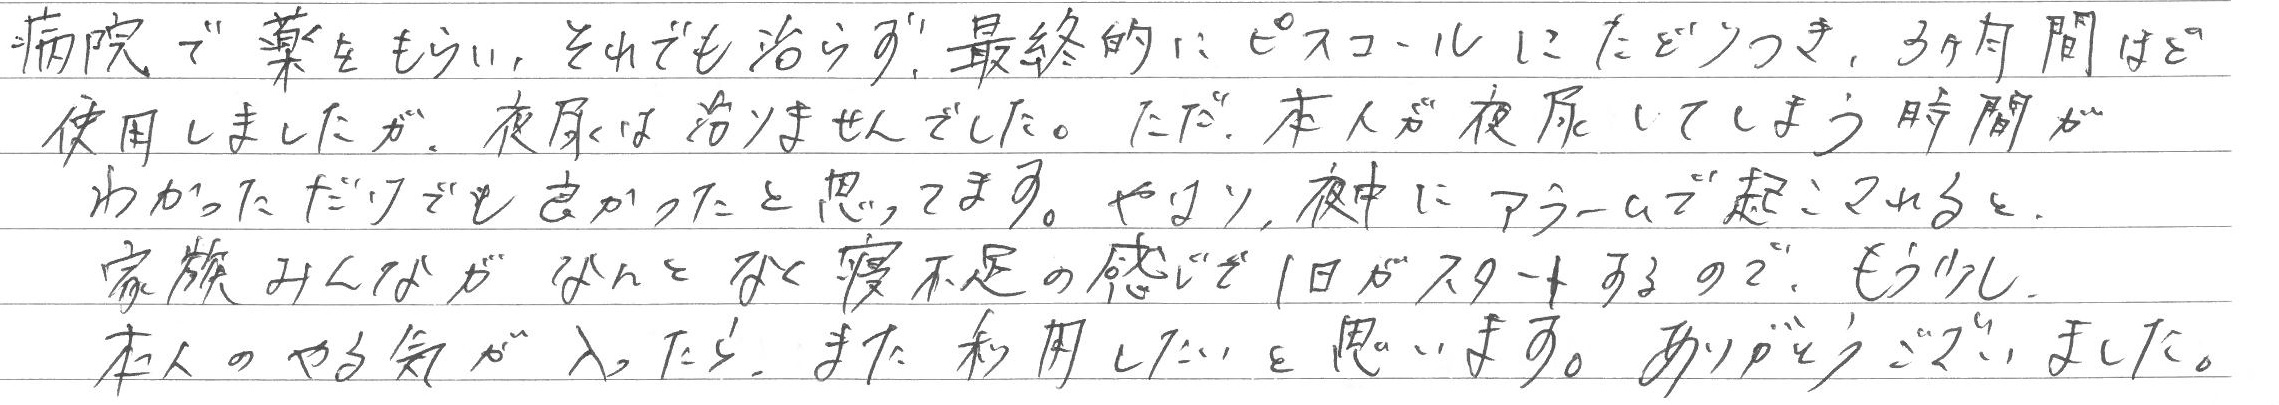 病院で薬をもらい、それでも治らず、最終的にピスコールにたどりつき、3ヶ月間ほど
使用しましたが、夜尿は治りませんでした。ただ、本人が夜尿してしまう時間が
わかっただけでも良かったと思ってます。やはり、夜中にアラームで起こされると、
家族みんながなんとなく寝不足の感じで1日がスタートするので、もう少し、
本人のやる気が入ったら、また利用したいと思います。ありがとうございました。